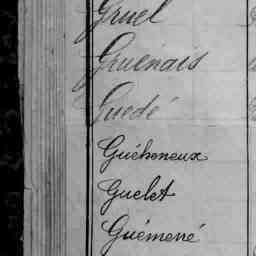 Gruel
Gruénais
Guedé
Guéheneux
Guelet
Guémené